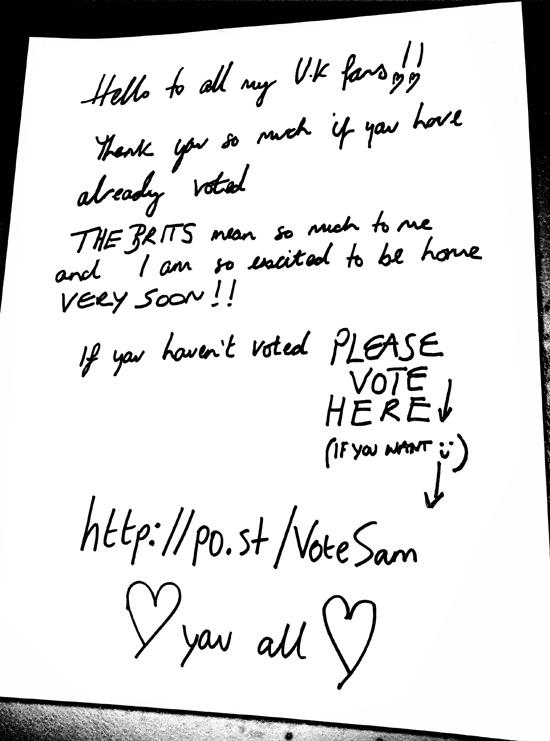 Hello to all my U.K fans!!
Thank you so much if you have
already voted
THE BRITS mean so much to me
and I am so excited to be home
VERY SOON!!
If you haven't voted PLEASE
VOTE
HERE
(IF YOU WANT)
http://po.st/VoteSam
you all